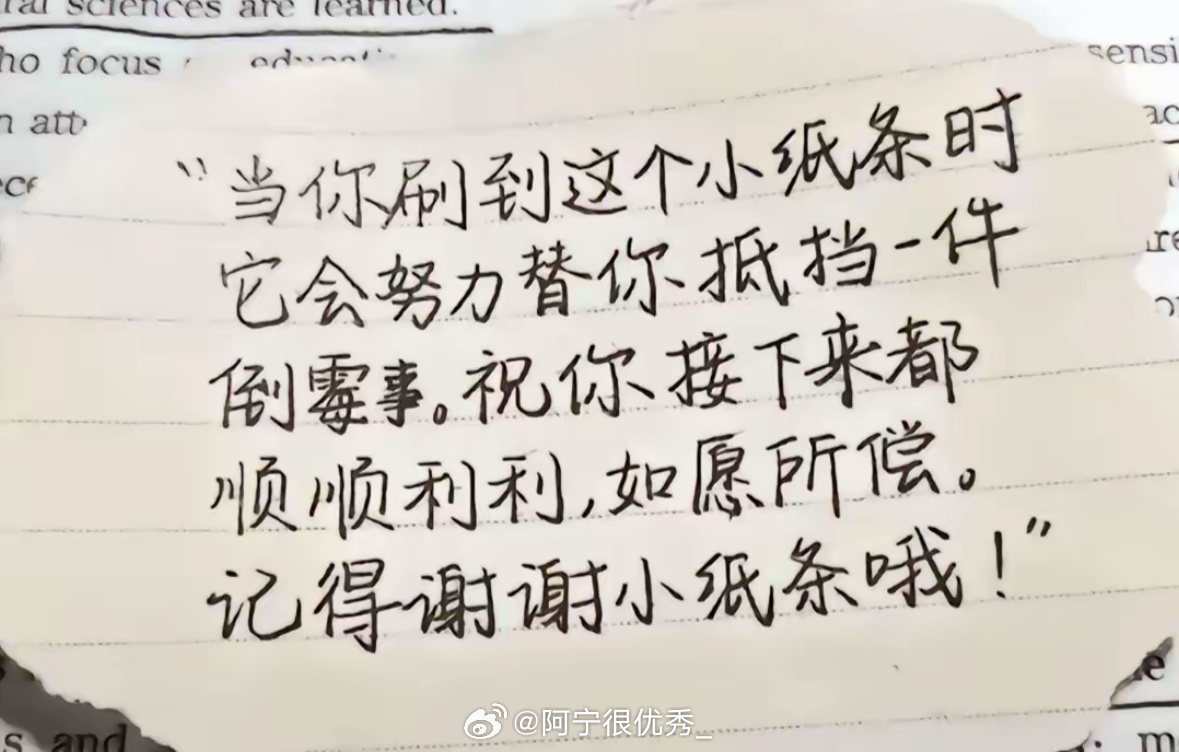 ral sciences are learned.
ho focus
sensi
n att
ac
"当你刷到这个小纸条时
它会努力替你抵挡一件
倒霉事。祝你接下来都
顺顺利利,如愿所偿。
记得谢谢小纸条哦!"
s and
@阿宁很优秀_